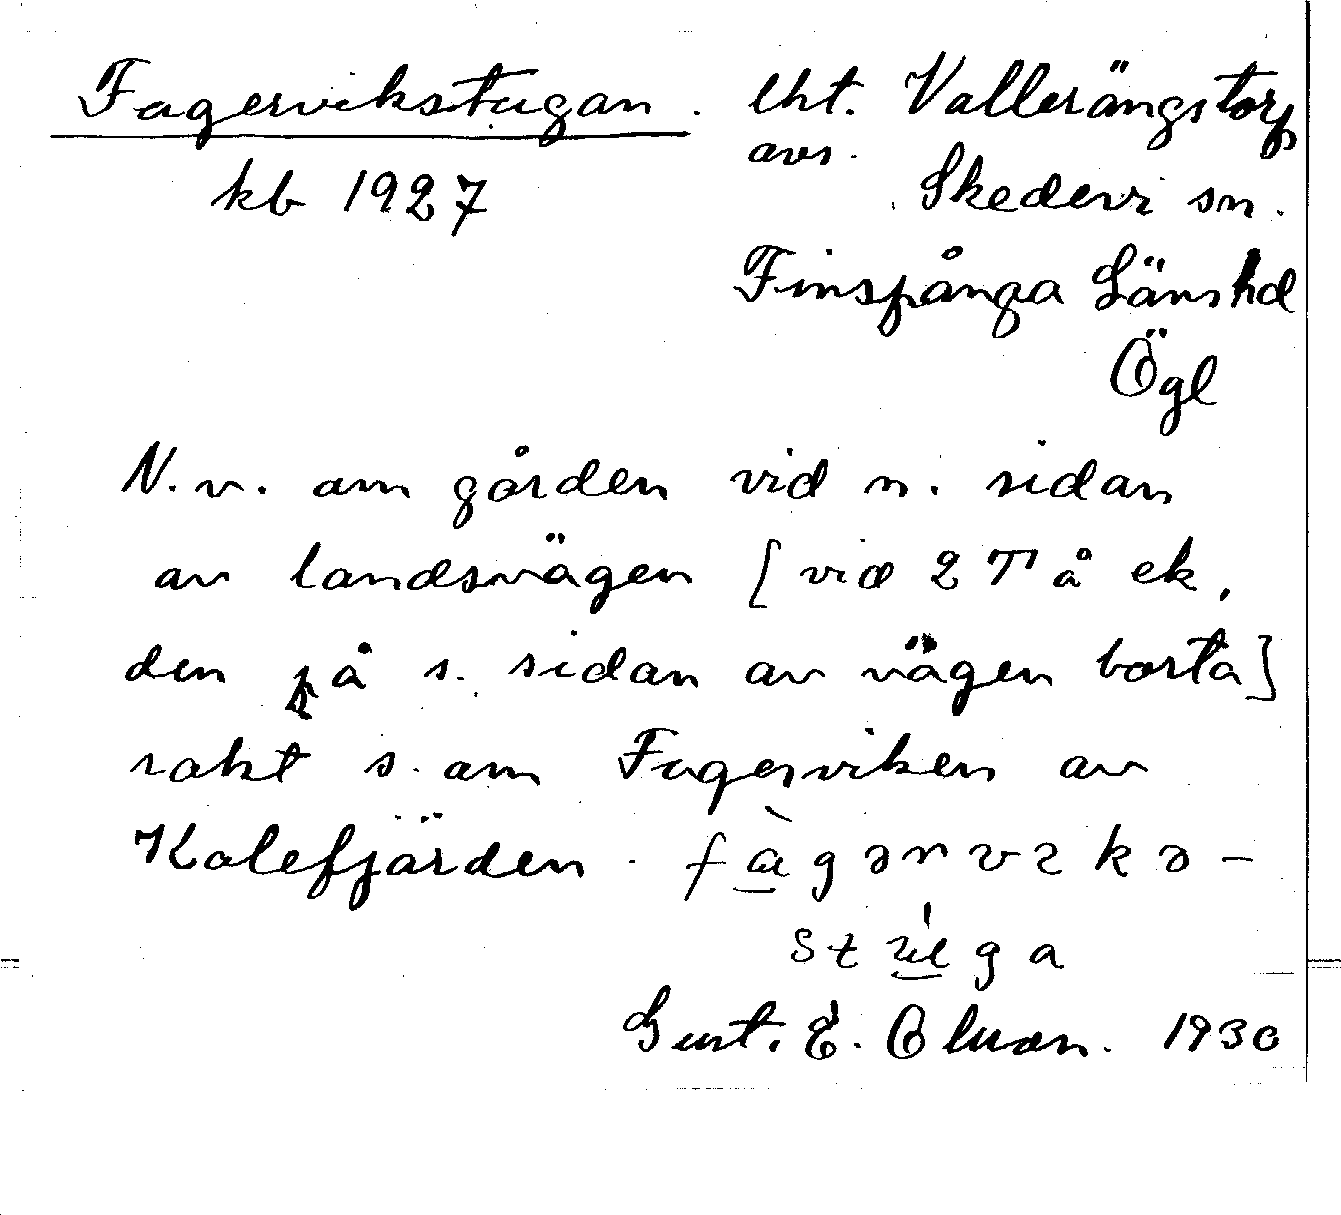 Fagervikstugan. lht. Vallerängstorp
avs.
kb 1927 Skedevi sn.
Finspånga Länshd
Ögl
N.v. om gården vid n. sidan
av landsvägen [vid 2 T å ek,
den på s. sidan av vägen borta]
rakt s. om Fagerviken av
Kolefjärden. fàgərvekə-
stúga
Gust. E. 1930